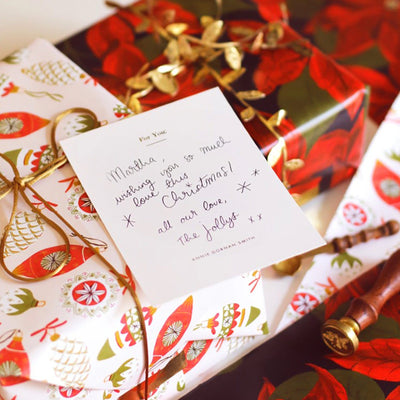 For You
Martha,
wishing you so much
love this
Christmas!
all our love,
The Jollys
x x
ANNIE DORMAN SMITH